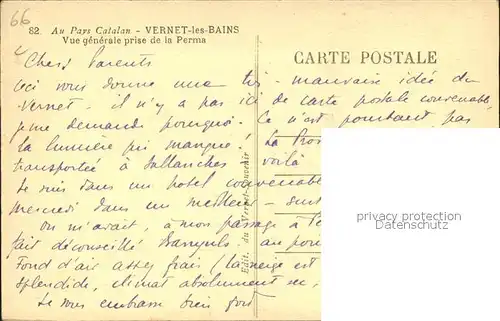 66
82. Au Pays Catalan - VERNET-les-BAINS
Vue générale prise de la Perma
CARTE POSTALE
Chers Parents
Ceci vous donne une très mauvaise idée du
Vernet - il n'y a pas ici de carte postale convenable,
je me demande pourquoi. Ce n'est pourtant pas
la lumière qui manque! La Pros
transportée à Sallanches voilà
Je suis dans un hotel convenable
mercredi dans un meilleur - surt
On m'avait, à mon passage à Pe
fait déconseillé Banyuls: au pou
Fond d'air assez frais (la neige est
splendide, climat absolument sec,
Je vous embrasse bien fort
Edit. du Vernet-Souvenir
privacy protection
Datenschutz